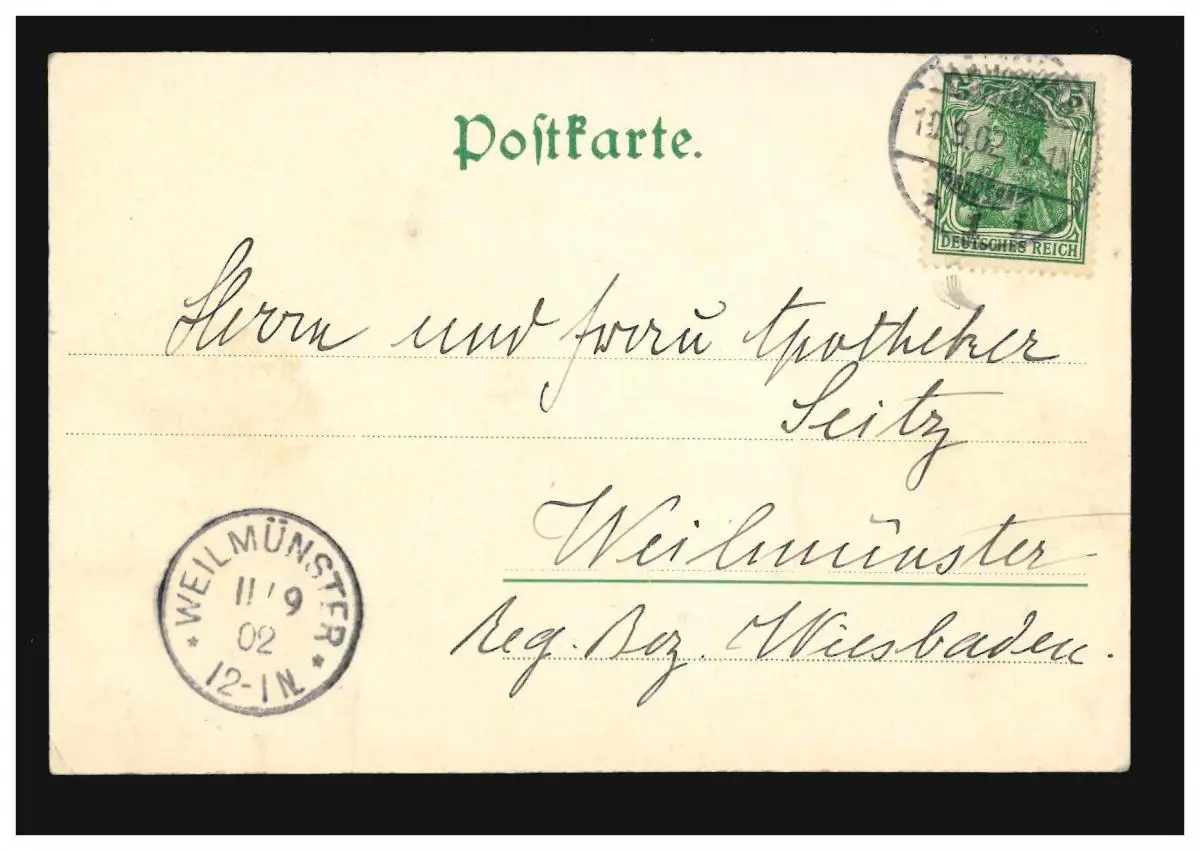 Postkarte.
5 5
10.9.02
DEUTSCHES REICH
Herrn und Frau Apotheker
Seitz
Weilmünster
Reg. Bez. Wiesbaden.
WEILMÜNSTER
11/9
02
12-1N.